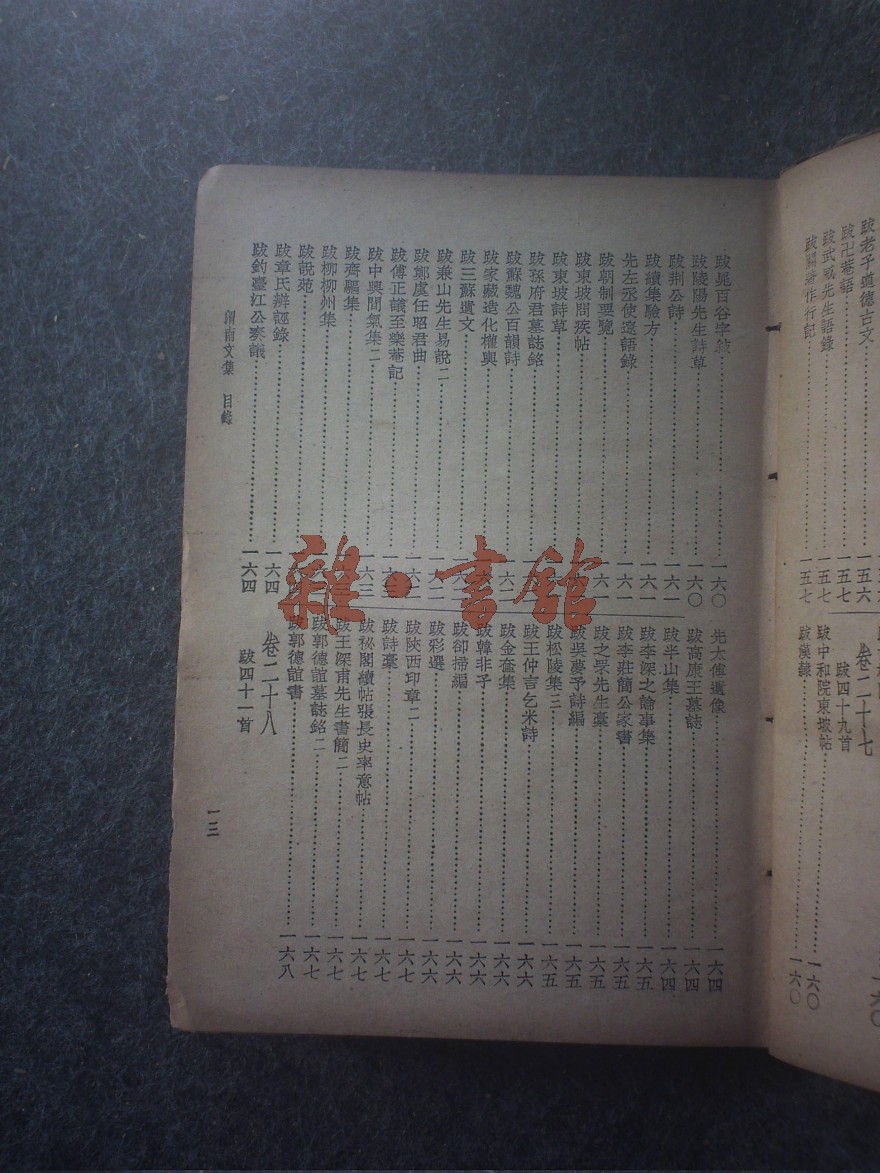 跋老子道德古文……一五六
跋卍菴語……一五七
跋武威先生語錄……一五七
卷二十七
跋四十九首
跋中和院東坡帖……一六〇
跋漢隸……一六〇
跋晁百谷字敘……一六〇
跋陵陽先生詩草……一六〇
跋荆公詩……一六一
跋續集驗方……一六一
先左丞使遼語錄……一六一
跋朝制要覽……一六一
跋東坡問疾帖
跋東坡詩草
跋孫府君墓誌銘
跋蘇魏公百韻詩
跋家藏造化權輿
跋三蘇遺文
跋兼山先生易說二
跋鄭虞任昭君曲
跋傅正議至樂菴記
跋中興間氣集二……一六三
跋齊驅集
跋柳柳州集
跋說苑
跋章氏辨誣錄……一六四
跋釣臺江公奏議……一六四
先太傅遺像……一六四
跋高康王墓誌……一六四
跋半山集……一六四
跋李深之論事集……一六五
跋李莊簡公家書……一六五
跋之罘先生稾……一六五
跋吳夢予詩編……一六五
跋松陵集三……一六五
跋王仲言乞米詩……一六六
跋金奩集……一六六
跋韓非子……一六六
跋卻掃編……一六六
跋彩選……一六六
跋陝西印章二……一六七
跋詩稾……一六七
跋祕閣續帖張長史率意帖
跋王深甫先生書簡二……一六七
跋郭德誼墓誌銘二……一六七
跋郭德誼書……一六八
卷二十八
跋四十一首
渭南文集 目錄
一三
雜·書館